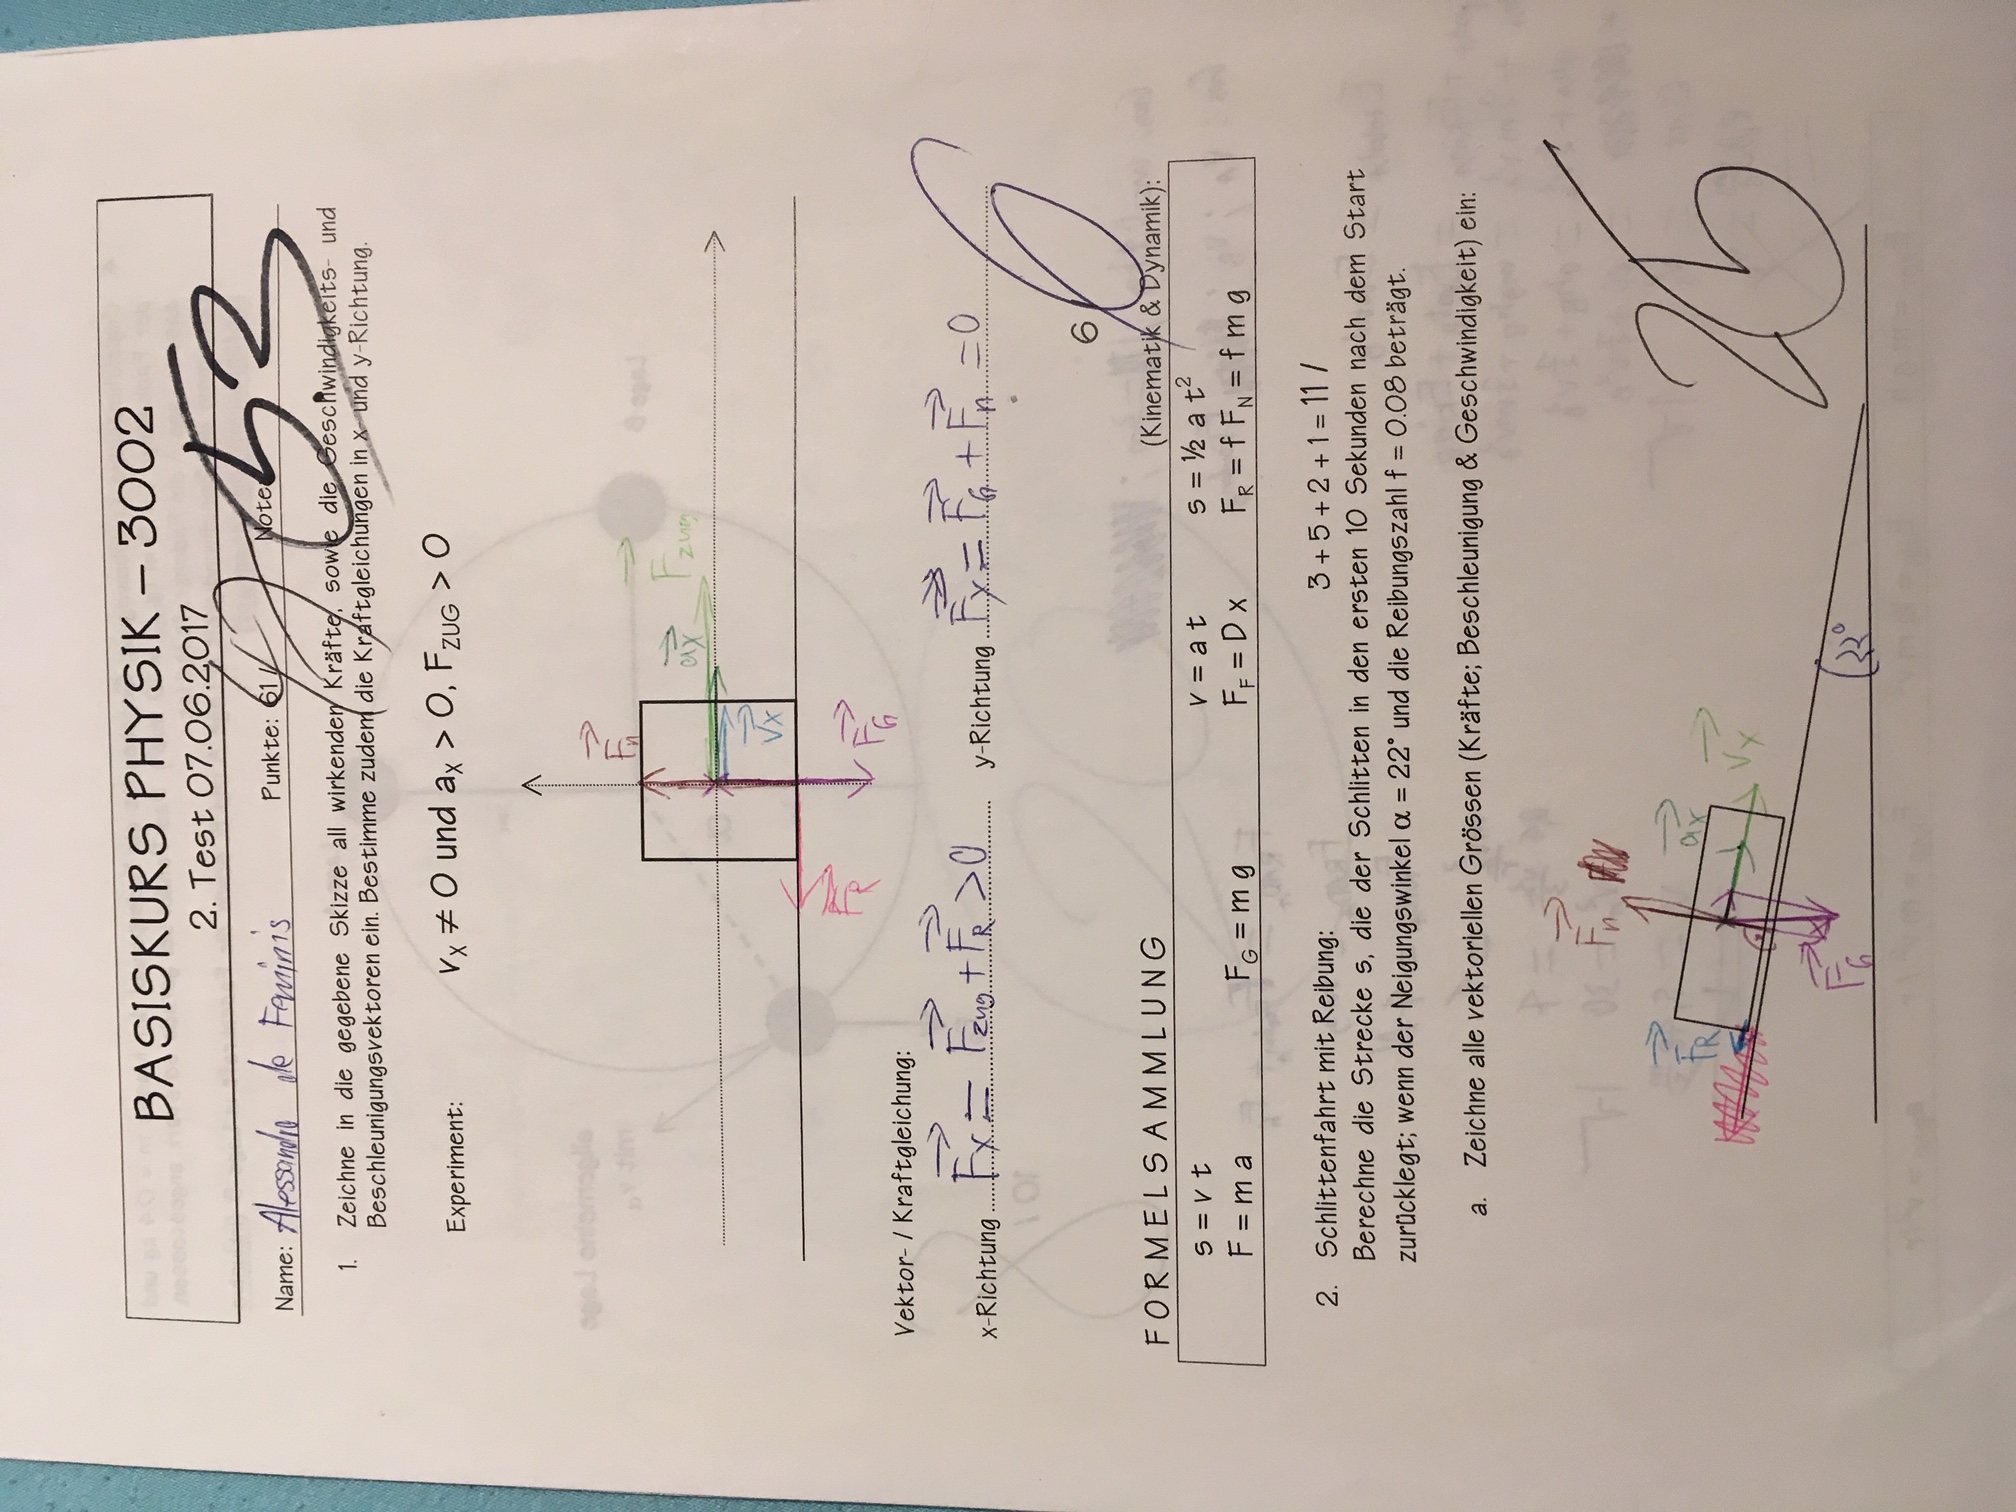 BASISKURS PHYSIK – 3002
2. Test 07.06.2017
Name: Alessandro de Feminis Punkte: 61 / Note: 5.3
1. Zeichne in die gegebene Skizze all wirkenden Kräfte, sowie die Geschwindigkeits- und
Beschleunigungsvektoren ein. Bestimme zudem die Kraftgleichungen in x- und y-Richtung.
Experiment: vX ≠ 0 und aX > 0, FZUG > 0
Fn
ax
Fzug
vx
FR
FG
Vektor- / Kraftgleichung:
x-Richtung Fx = Fzug + FR > 0 y-Richtung Fy = FG + Fn = 0
6 / 6
FORMELSAMMLUNG (Kinematik & Dynamik):
s = v t v = a t s = ½ a t²
F = m a FG = m g FF = D x FR = f FN = f m g
2. Schlittenfahrt mit Reibung: 3 + 5 + 2 + 1 = 11 /
Berechne die Strecke s, die der Schlitten in den ersten 10 Sekunden nach dem Start
zurücklegt; wenn der Neigungswinkel α = 22° und die Reibungszahl f = 0.08 beträgt.
a. Zeichne alle vektoriellen Grössen (Kräfte; Beschleunigung & Geschwindigkeit) ein:
Fn
FR
ax
vx
FG
22°